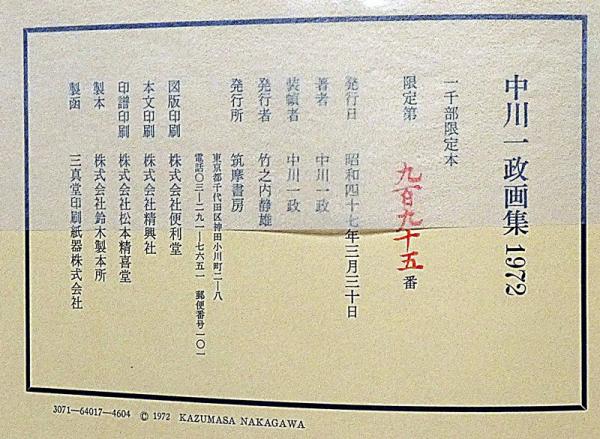 中川一政画集 1972
一千部限定本
限定第 九百九十五 番
発行日 昭和四十七年三月三十日
著者 中川一政
装幀者 中川一政
発行者 竹之内静雄
発行所 筑摩書房
東京都千代田区神田小川町二―八
電話〇三―二九一―七六五一 郵便番号一〇一
図版印刷 株式会社便利堂
本文印刷 株式会社精興社
印譜印刷 株式会社松本精喜堂
製本 株式会社鈴木製本所
製函 三真堂印刷紙器株式会社
3071―64017―4604 © 1972 KAZUMASA NAKAGAWA